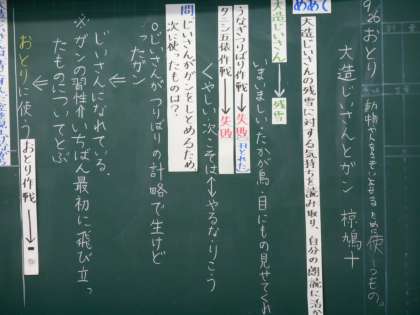 9/26 おとり 動物や人をさそいよせるために使うもの。
大造じいさんとガン 椋鳩十
めあて
大造じいさんの残雪に対する気持ちを読み取り、自分の朗読に活か
大造じいさん→残雪
いまいましい・たかが鳥・目にもの見せてくれ
うなぎつりばり作戦→失敗 おとれた
タニシ五俵作戦→失敗
くやしい・次こそは↑↓やるな・りこう
問
じいさんがガンをしとめるため次に使ったものは?
○じいさんがつりばりの計略で生けどったガン
じいさんになれている。
※ガンの習性 いちばん最初に飛び立ったものについてとぶ
おとりに使う おとり作戦→